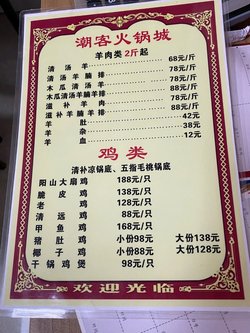 潮客火锅城
羊肉类 2斤起
清汤羊 68元/斤
清汤羊腩排 78元/斤
木瓜清汤羊 78元/斤
木瓜清汤羊腩排 88元/斤
滋补羊肉 78元/斤
滋补羊腩排 88元/斤
羊肚 42元
羊杂 38元
羊血 12元
鸡类
清补凉锅底、五指毛桃锅底
阳山大扇鸡 188元/只
脆皮鸡 138元/只
老鸡 128元/只
清远鸡 88元/只
甲鱼鸡 168元/只
猪肚鸡 小份98元 大份138元
椰子鸡 小份88元 大份128元
干锅鸡煲 98元/只
欢迎光临